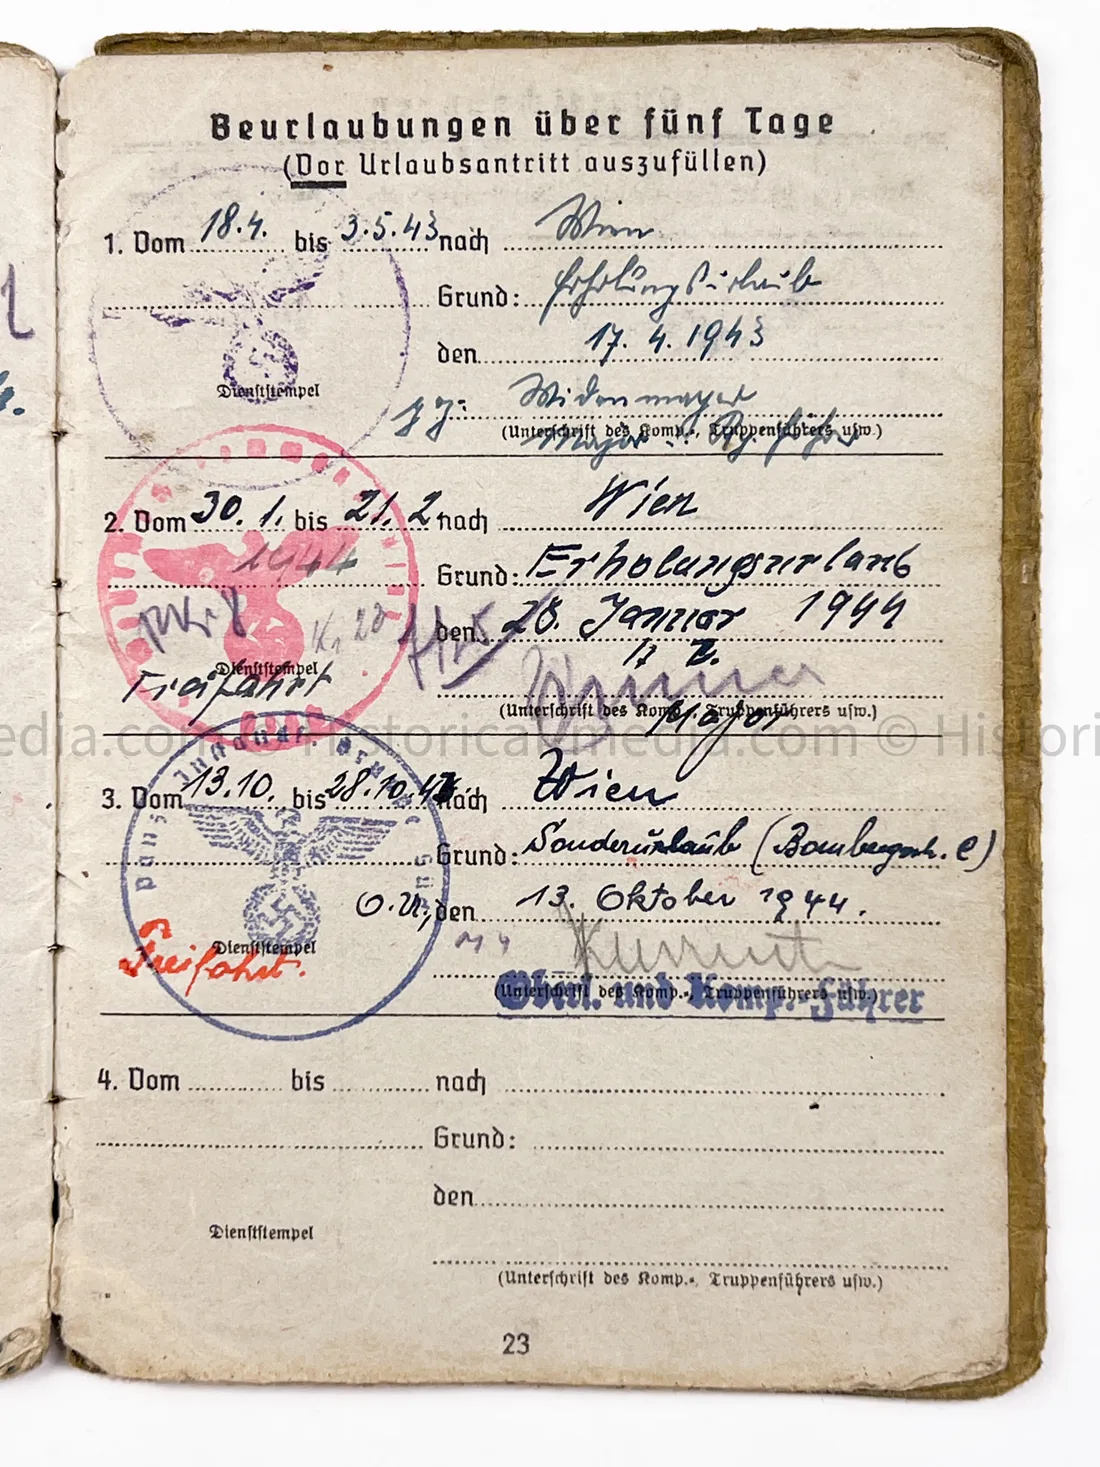 Beurlaubungen über fünf Tage
(Vor Urlaubsantritt auszufüllen)
1. Vom 18.4. bis 3.5.43 nach Wien
Grund: Erholungsurlaub
den 17. 4. 1943
Dienststempel
gez: Widenmayer
(Unterschrift des Komp.-, Truppenführers usw.)
Major
2. Vom 30. 1. bis 21. 2 nach Wien
1944
Grund: Erholungsurlaub
den 28. Januar 1944
Kr 20
Dienststempel
Freifahrt
(Unterschrift des Komp.-, Truppenführers usw.)
Major
© Historicalmedia.com © Histori
3. Vom 13.10. bis 28.10.44 nach Wien
Grund: Sonderurlaub (
O.U., den 13. Oktober 1944.
Dienststempel
Freifahrt.
(Unterschrift des Komp.-, Truppenführers usw.)
Oberl. und Komp.-Führer
4. Vom bis nach
Grund:
den
Dienststempel
(Unterschrift des Komp.-, Truppenführers usw.)
23